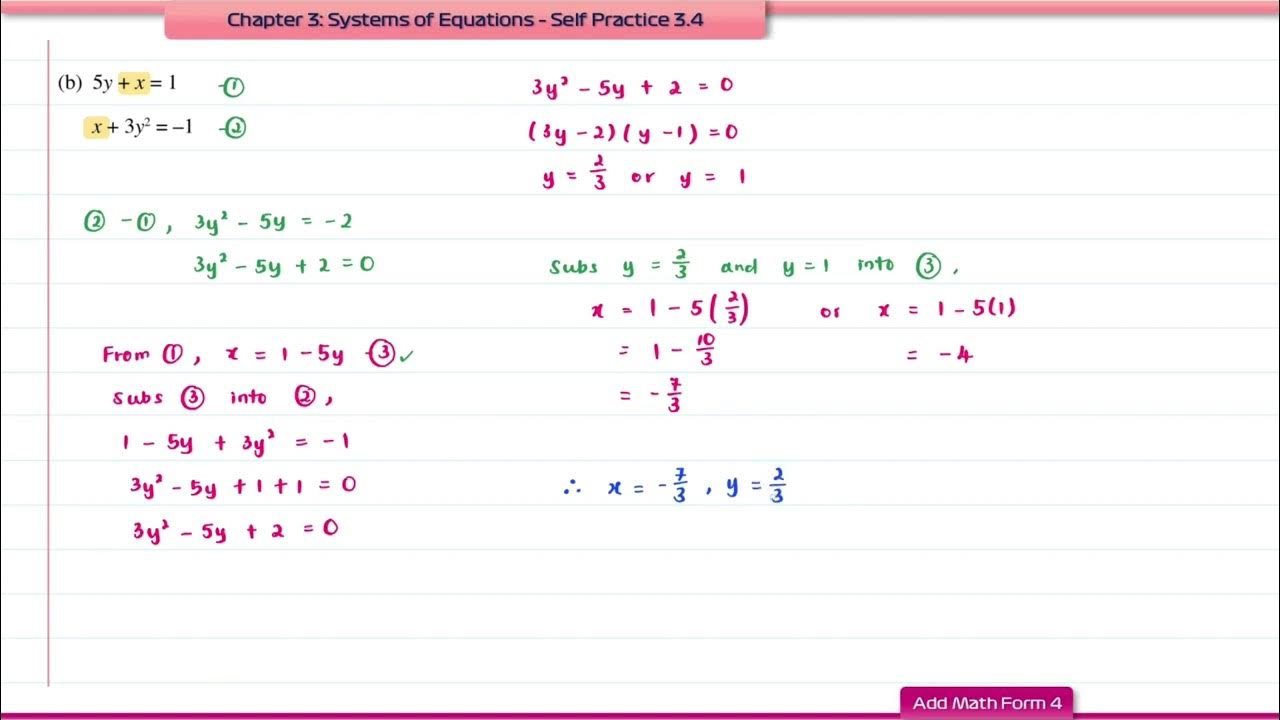 Chapter 3: Systems of Equations - Self Practice 3.4
(b) 5y + x = 1 -①
x + 3y² = –1 -②
② - ①, 3y² - 5y = -2
3y² - 5y + 2 = 0
From ①, x = 1 - 5y -③ ✓
Subs ③ into ②,
1 - 5y + 3y² = -1
3y² - 5y + 1 + 1 = 0
3y² - 5y + 2 = 0
3y² - 5y + 2 = 0
(3y - 2)(y - 1) = 0
y = 2/3 or y = 1
Subs y = 2/3 and y = 1 into ③,
x = 1 - 5(2/3) or x = 1 - 5(1)
= 1 - 10/3 = -4
= -7/3
∴ x = -7/3, y = 2/3
Add Math Form 4